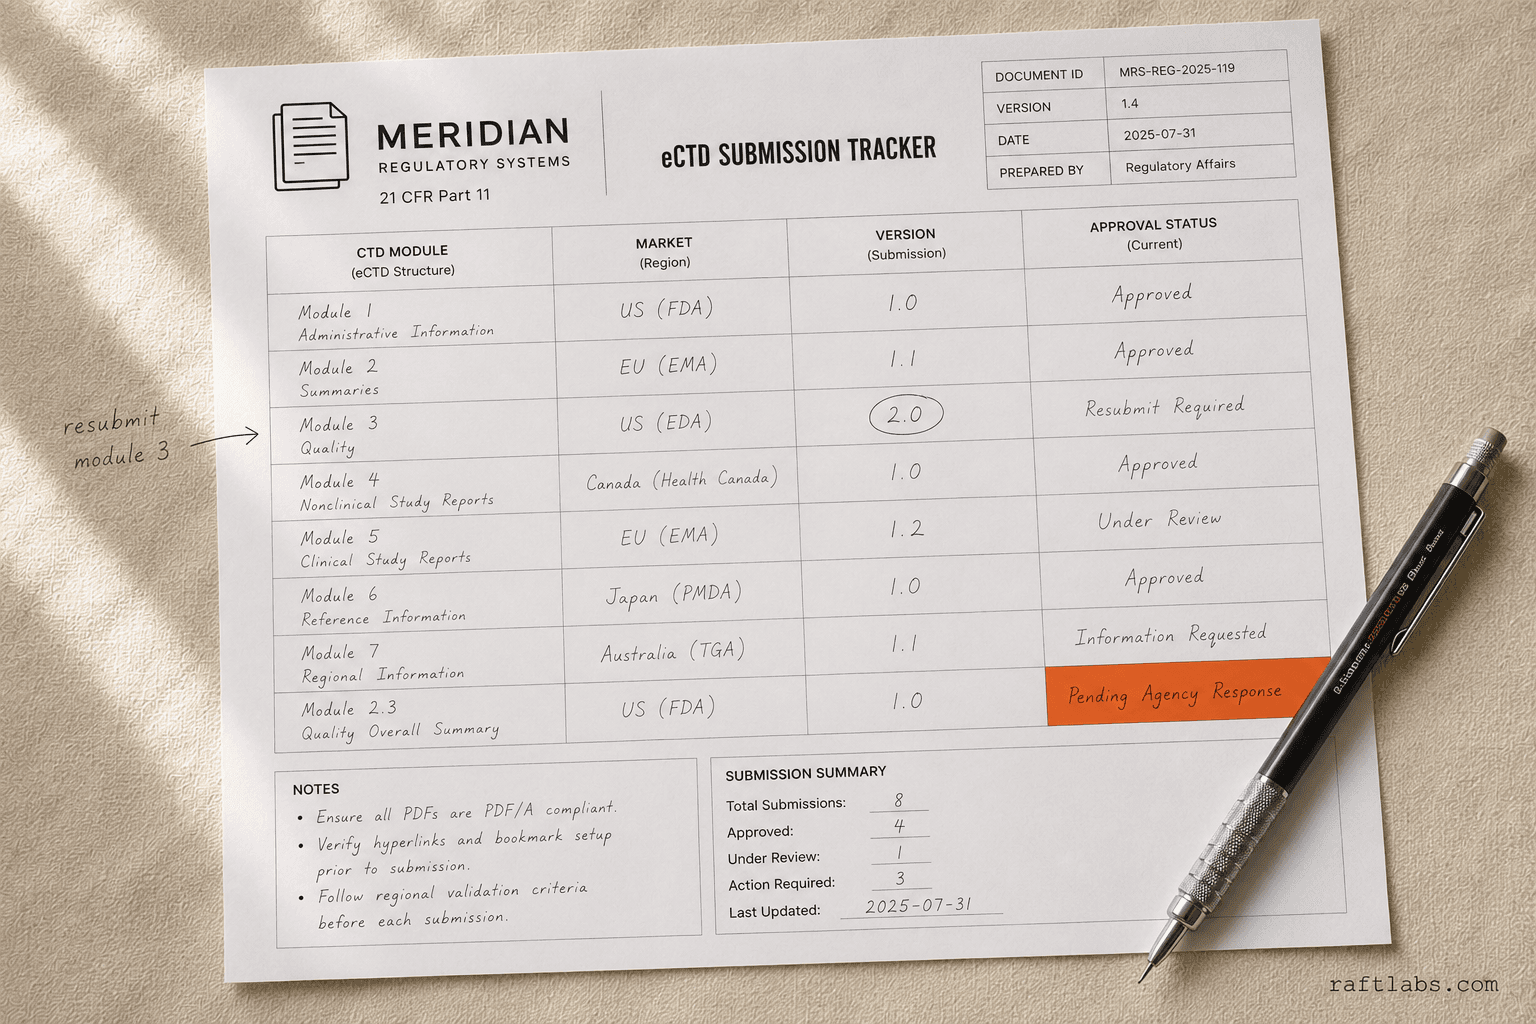 MERIDIAN
REGULATORY SYSTEMS
21 CFR Part 11
eCTD SUBMISSION TRACKER
DOCUMENT ID MRS-REG-2025-119
VERSION 1.4
DATE 2025-07-31
PREPARED BY Regulatory Affairs
CTD MODULE
(eCTD Structure)
MARKET
(Region)
VERSION
(Submission)
APPROVAL STATUS
(Current)
Module 1
Administrative Information
US (FDA)
1.0
Approved
Module 2
Summaries
EU (EMA)
1.1
Approved
resubmit
module 3
Module 3
Quality
US (EDA)
2.0
Resubmit Required
Module 4
Nonclinical Study Reports
Canada (Health Canada)
1.0
Approved
Module 5
Clinical Study Reports
EU (EMA)
1.2
Under Review
Module 6
Reference Information
Japan (PMDA)
1.0
Approved
Module 7
Regional Information
Australia (TGA)
1.1
Information Requested
Module 2.3
Quality Overall Summary
US (FDA)
1.0
Pending Agency Response
NOTES
• Ensure all PDFs are PDF/A compliant.
• Verify hyperlinks and bookmark setup
prior to submission.
• Follow regional validation criteria
before each submission.
SUBMISSION SUMMARY
Total Submissions: 8
Approved: 4
Under Review: 1
Action Required: 3
Last Updated: 2025-07-31
raftlabs.com